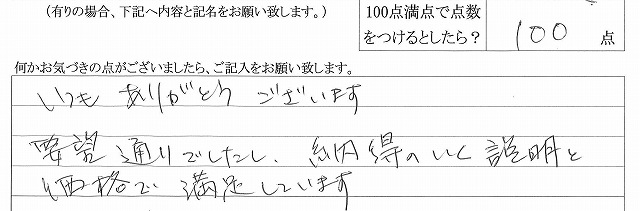 （有りの場合、下記へ内容と記名をお願い致します。）
100点満点で点数
をつけるとしたら？
100 点
何かお気づきの点がございましたら、ご記入をお願い致します。
いつも ありがとう ございます
要望通りでしたし、納得のいく説明と
価格で 満足しています